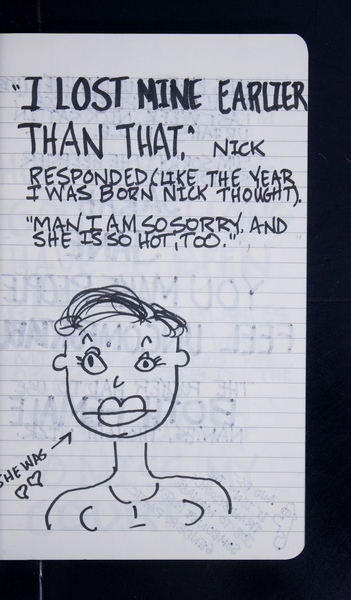 "I LOST MINE EARLIER
THAN THAT," NICK
RESPONDED (LIKE THE YEAR
I WAS BORN NICK THOUGHT).
"MAN, I AM SO SORRY. AND
SHE IS SO HOT, TOO."
SHE WAS